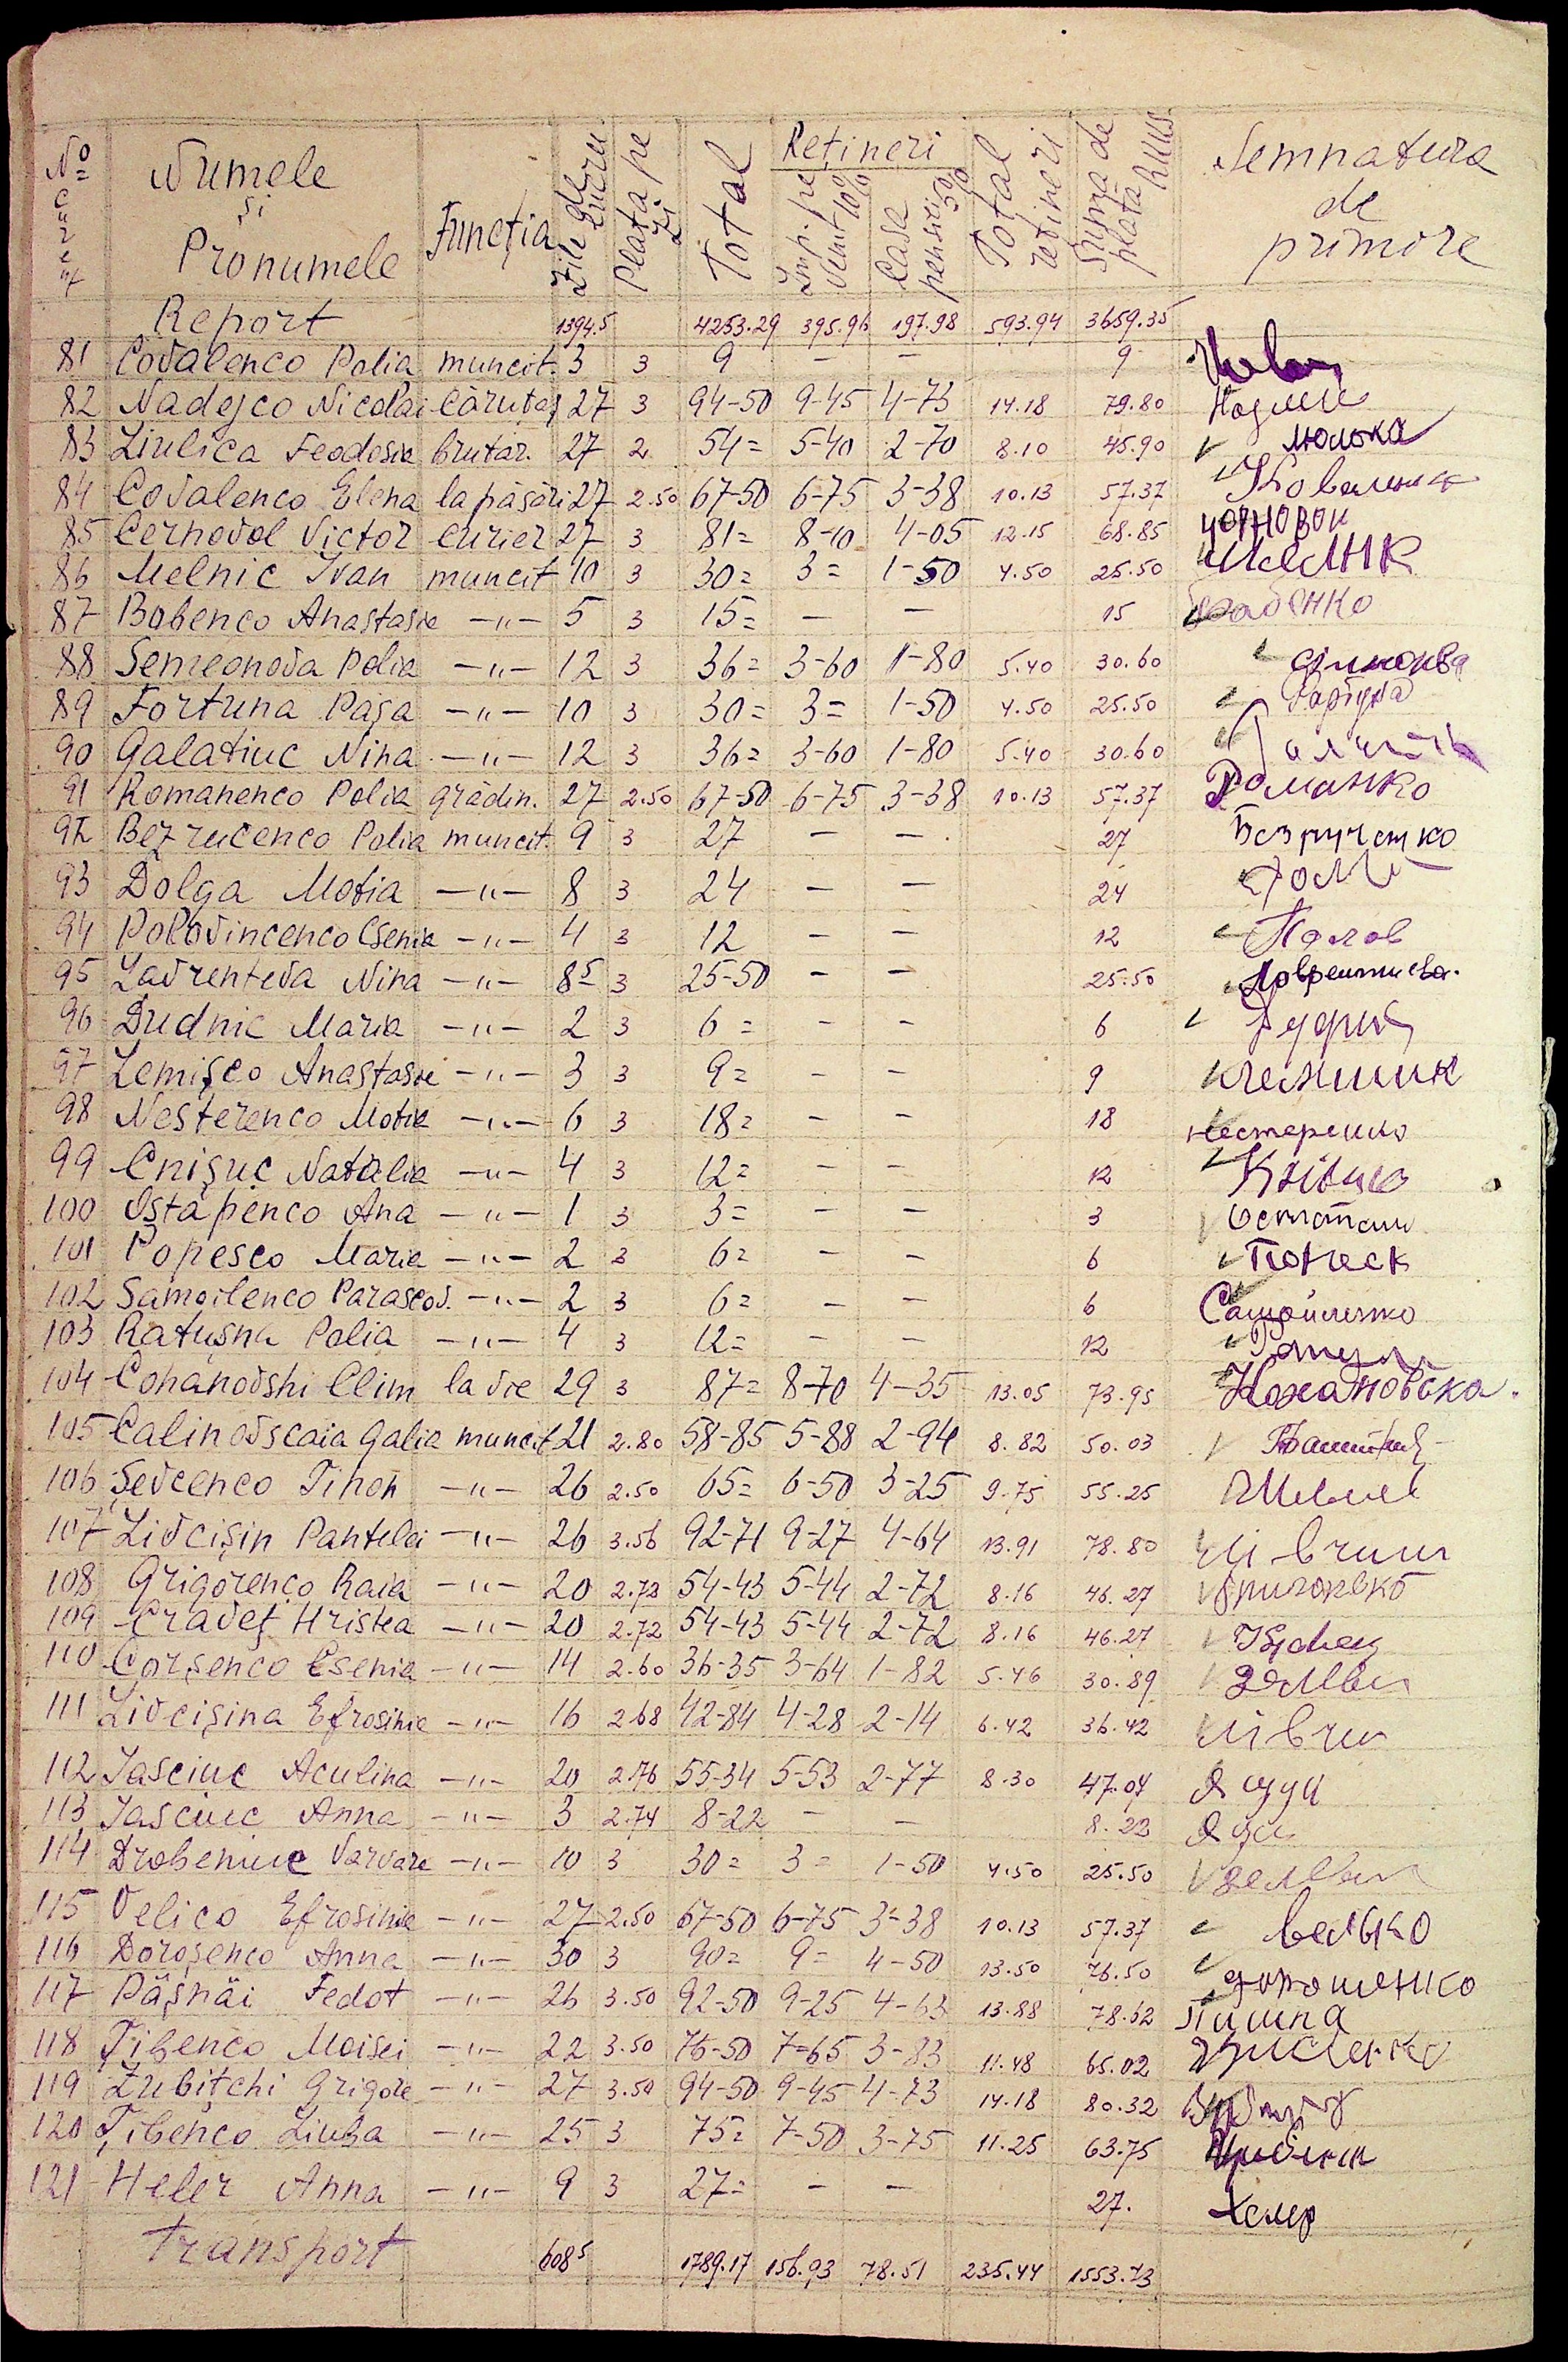 No curent Numele și Pronumele Funcția Zile de lucru Plata pe zi Total Rețineri Imp. pe venit 10% Casa pensii 5% Total rețineri Suma de plată RKKS. Semnatura de primire
Report 1394.5 4253.29 395.96 197.98 593.94 3659.35
81 Covalenco Polia muncit. 3 3 9 — — 9
82 Nadejco Nicolai Căruțaș 27 3 94-50 9-45 4-73 14.18 79.80
83 Liulica Feodosia brutar. 27 2 54= 5-40 2-70 8.10 45.90 Люлька
84 Covalenco Elena la păsări 27 2.50 67-50 6-75 3-38 10.13 57.37
85 Cernovol Victor curier 27 3 81= 8-10 4-05 12.15 68.85
86 Melnic Ivan muncit 10 3 30= 3= 1-50 4.50 25.50
87 Bobenco Anastasia —"— 5 3 15= — — 15
88 Semeonova Polia —"— 12 3 36= 3-60 1-80 5.40 30.60
89 Fortuna Pașa —"— 10 3 30= 3= 1-50 4.50 25.50
90 Galatiuc Nina —"— 12 3 36= 3-60 1-80 5.40 30.60
91 Romanenco Polia grădin. 27 2.50 67-50 6-75 3-38 10.13 57.37 Романко
92 Bezrucenco Polia muncit. 9 3 27 — — 27 Безрученко
93 Dolga Motia —"— 8 3 24 — — 24
94 Polovincenco Csenia —"— 4 3 12 — — 12 Полов
95 Lavrenteva Nina —"— 8 5 3 25-50 — — 25.50
96 Dudnic Maria —"— 2 3 6= — — 6
97 Lemișco Anastasie —"— 3 3 9= — — 9
98 Nesterenco Motia —"— 6 3 18= — — 18 нестеренко
99 Cnișuc Natalia —"— 4 3 12= — — 12
100 Ostapenco Ana —"— 1 3 3= — — 3
101 Popesco Maria —"— 2 3 6= — — 6
102 Samoilenco Parascov. —"— 2 3 6= — — 6 Самойленко
103 Ratușna Polia —"— 4 3 12= — — 12
104 Cohanovshi Clim la vie 29 3 87= 8-70 4-35 13.05 73.95 Кохановська.
105 Calinovscaia Galia muncit 21 2.80 58-85 5-88 2-94 8.82 50.03
106 Șevcenco Tihon —"— 26 2.50 65= 6-50 3-25 9.75 55.25
107 Livcișin Pantelei —"— 26 3.56 92-71 9-27 4-64 13.91 78.80
108 Grigorenco Raia —"— 20 2.72 54-43 5-44 2-72 8.16 46.27
109 Craveț Hristea —"— 20 2.72 54-43 5-44 2-72 8.16 46.27
110 Corșenco Csenia —"— 14 2.60 36-35 3-64 1-82 5.46 30.89
111 Livcișina Efrosinie —"— 16 2.68 42-84 4-28 2-14 6.42 36.42
112 Iasciuc Aculina —"— 20 2.76 55-34 5-53 2-77 8.30 47.04
113 Iasciuc Anna —"— 3 2.74 8-22 — — 8.22
114 Drobeniuc Varvara —"— 10 3 30= 3= 1-50 4.50 25.50
115 Velico Efrosinie —"— 27 2.50 67-50 6-75 3-38 10.13 57.37 Велько
116 Doroșenco Anna —"— 30 3 90= 9= 4-50 13.50 76.50 дорошенко
117 Pășnăi Fedot —"— 26 3.50 92-50 9-25 4-63 13.88 78.62
118 Țibenco Moisei —"— 22 3.50 76-50 7-65 3-83 11.48 65.02
119 Zubițchi Grigore —"— 27 3.50 94-50 9-45 4-73 14.18 80.32
120 Țibenco Liuba —"— 25 3 75= 7-50 3-75 11.25 63.75
121 Heler Anna —"— 9 3 27= — — 27. Хелер
Transport 608 5 1789.17 156.93 78.51 235.44 1553.73